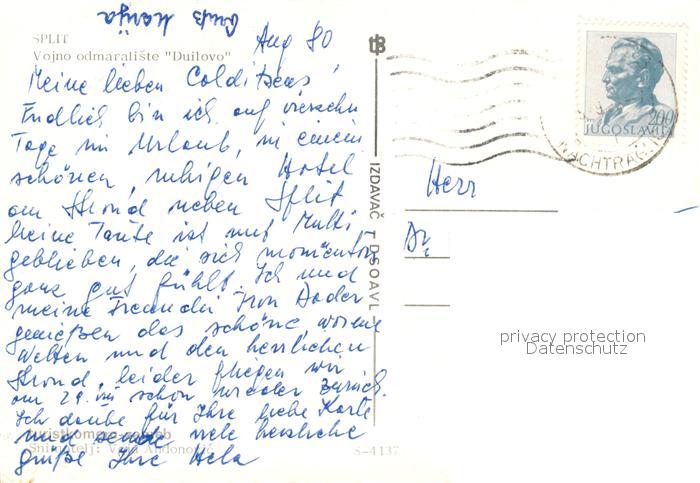 Gruß Marija
SPLIT
Vojno odmaralište "Duilovo"
Aug 80
Meine lieben
Endlich bin ich auf vierzehn
Tage im Urlaub, in einem
schönen, ruhigen Hotel
am Strand neben Split
Meine Tante ist mit Mutti
geblieben, die sich momentan
ganz gut fühlt. Ich und
meine Freundin Frau
genießen das schöne, warme
Wetter und den herrlichen
Strond, leider fliegen wir
am 29. schon wieder zurück.
Ich danke für Ihre liebe Karte
und sende viele herzliche
grüße Ihre Hela
turistkomerc zagreb
Snimatelj: Andonović
S-4137
IZDAVAČ T D SOAVL
200
JUGOSLAVIJA
NACHTRÄGL
Herr
Dr.
privacy protection
Datenschutz